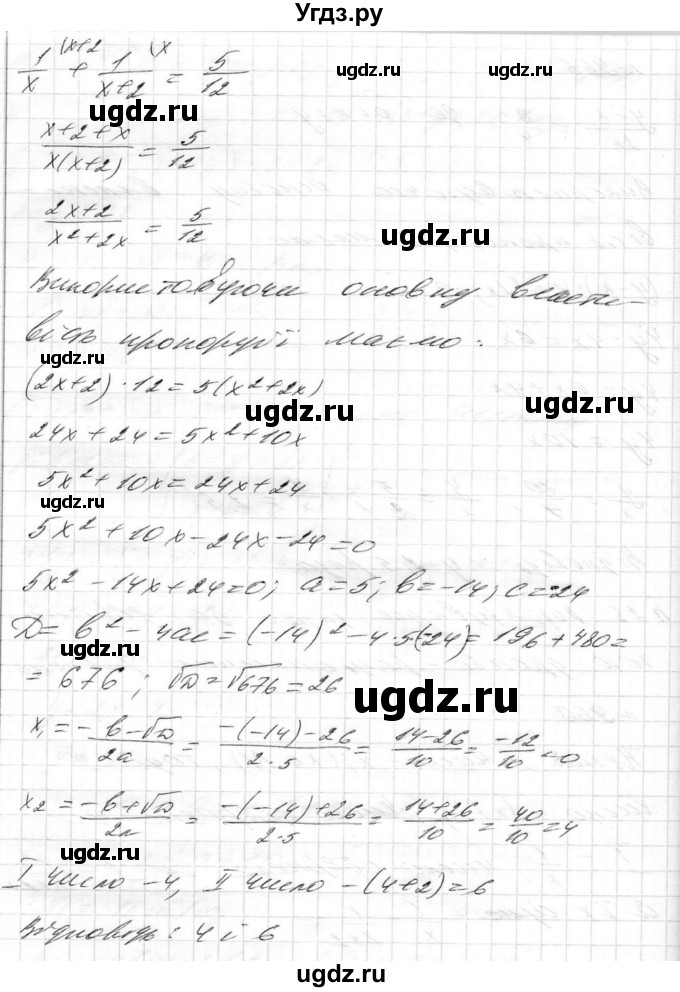 Угдз.ру
\x+2 \x
1/x + 1/(x+2) = 5/12
ugdz.ru
(x+2+x)/(x(x+2)) = 5/12
ugdz.ru
ugdz.ru
(2x+2)/(x²+2x) = 5/12
ugdz.ru
Використовуючи основну власти-
вість пропорції маємо:
(2x+2)·12=5(x²+2x)
ugdz.ru
24x+24=5x²+10x
5x²+10x=24x+24
ugdz.ru
5x²+10x-24x-24=0
5x²-14x+24=0; a=5; b=-14; c=-24
D=b²-4ac=(-14)²-4·5·(-24)=196+480=
ugdz.ru
=676; √D=√676=26
ugdz.ru
x₁=(-b-√D)/2a=(-(-14)-26)/(2·5)=(14-26)/10=-12/10<0
ugdz.ru
x₂=(-b+√D)/2a=(-(-14)+26)/(2·5)=(14+26)/10=40/10=4
ugdz.ru
I число -4, II число -(4+2)=6
ugdz.ru
Відповідь: 4 і 6
ugdz.ru